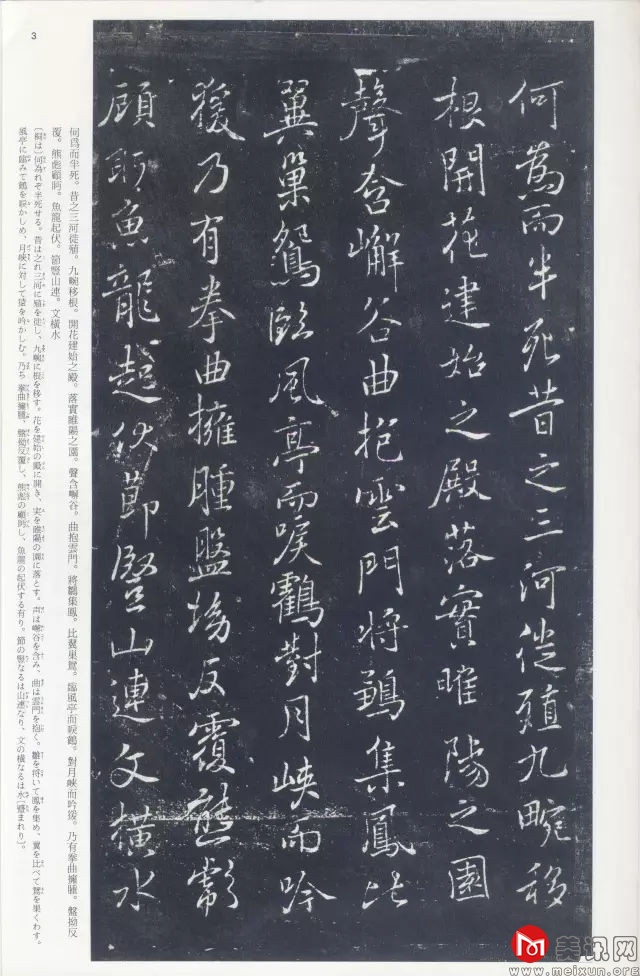 何為而半死昔之三河徙殖九畹移
根開花建始之殿落實睢陽之園
聲含嶰谷曲抱雲門將鶵集鳳比
翼巢鴛臨風亭而唳鶴對月峽而吟
猨乃有拳曲擁腫盤坳反覆熊彪
顧盻魚龍起伏節豎山連文橫水
3
何爲而半死。昔之三河徙殖。九畹移根。開花建始之殿。落實睢陽之園。聲含嶰谷。曲抱雲門。將鶵集鳳。比翼巢鴛。臨風亭而唳鶴。對月峽而吟猨。乃有拳曲擁腫。盤坳反
覆。熊彪顧盻。魚龍起伏。節豎山連。文橫水
〔桐は〕何為れぞ半死せる。昔は之れ三河に殖を徙し、九畹に根を移す。花を建始の殿に開き、実を睢陽の園に落とす。声は嶰谷を含み、曲は雲門を抱く。雛を将いて鳳を集め、翼を比べて鴛を巣くわす。
風亭に臨みて鶴を唳かしめ、月峡に対して猿を吟かしむ。乃ち拳曲擁腫、盤坳反覆し、熊彪の顧盻し、魚龍の起伏する有り。節の豎なるは山連なり、文の横なるは水〔蹙まれり〕。
美讯网
www.meixun.org